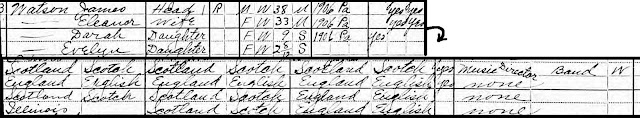 3 Watson James Head R M W 38 M 1906 Pa yes yes
— Eleanor Wife F W 33 M 1906 Pa yes yes
— Daughter F W 9 S 1906 Pa yes
— Evelyn Daughter F W S
Scotland Scotch Scotland Scotch Scotland Scotch yes Music Director Band W
England English England English England English yes none
Scotland Scotch Scotland Scotch England English none
Illinois Scotland Scotch England English none